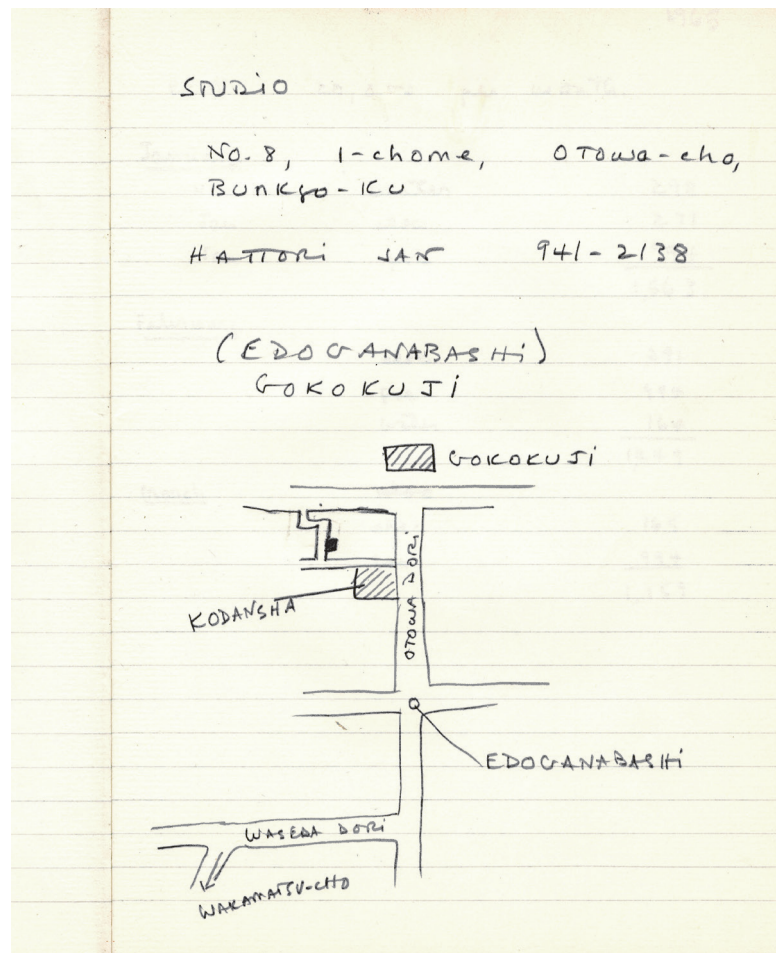 STUDIO
No. 8, 1-chome, OTOWA-cho,
BUNKYO-KU
HATTORI SAN 941-2138
(EDOGANABASHI)
GOKOKUJI
GOKOKUJI
OTOWA DORI
KODANSHA
EDOGANABASHI
WASEDA DORI
WAKAMATSU-CHO